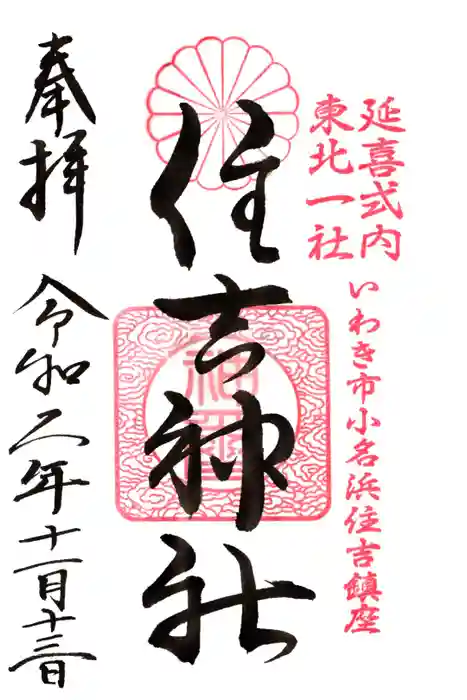 延喜式内
東北一社
いわき市小名浜住吉鎮座
住吉神社
奉拝
令和二年十一月十三日